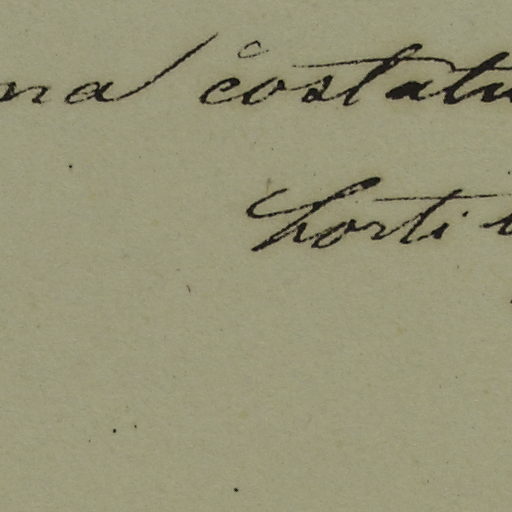 na costatu
horti